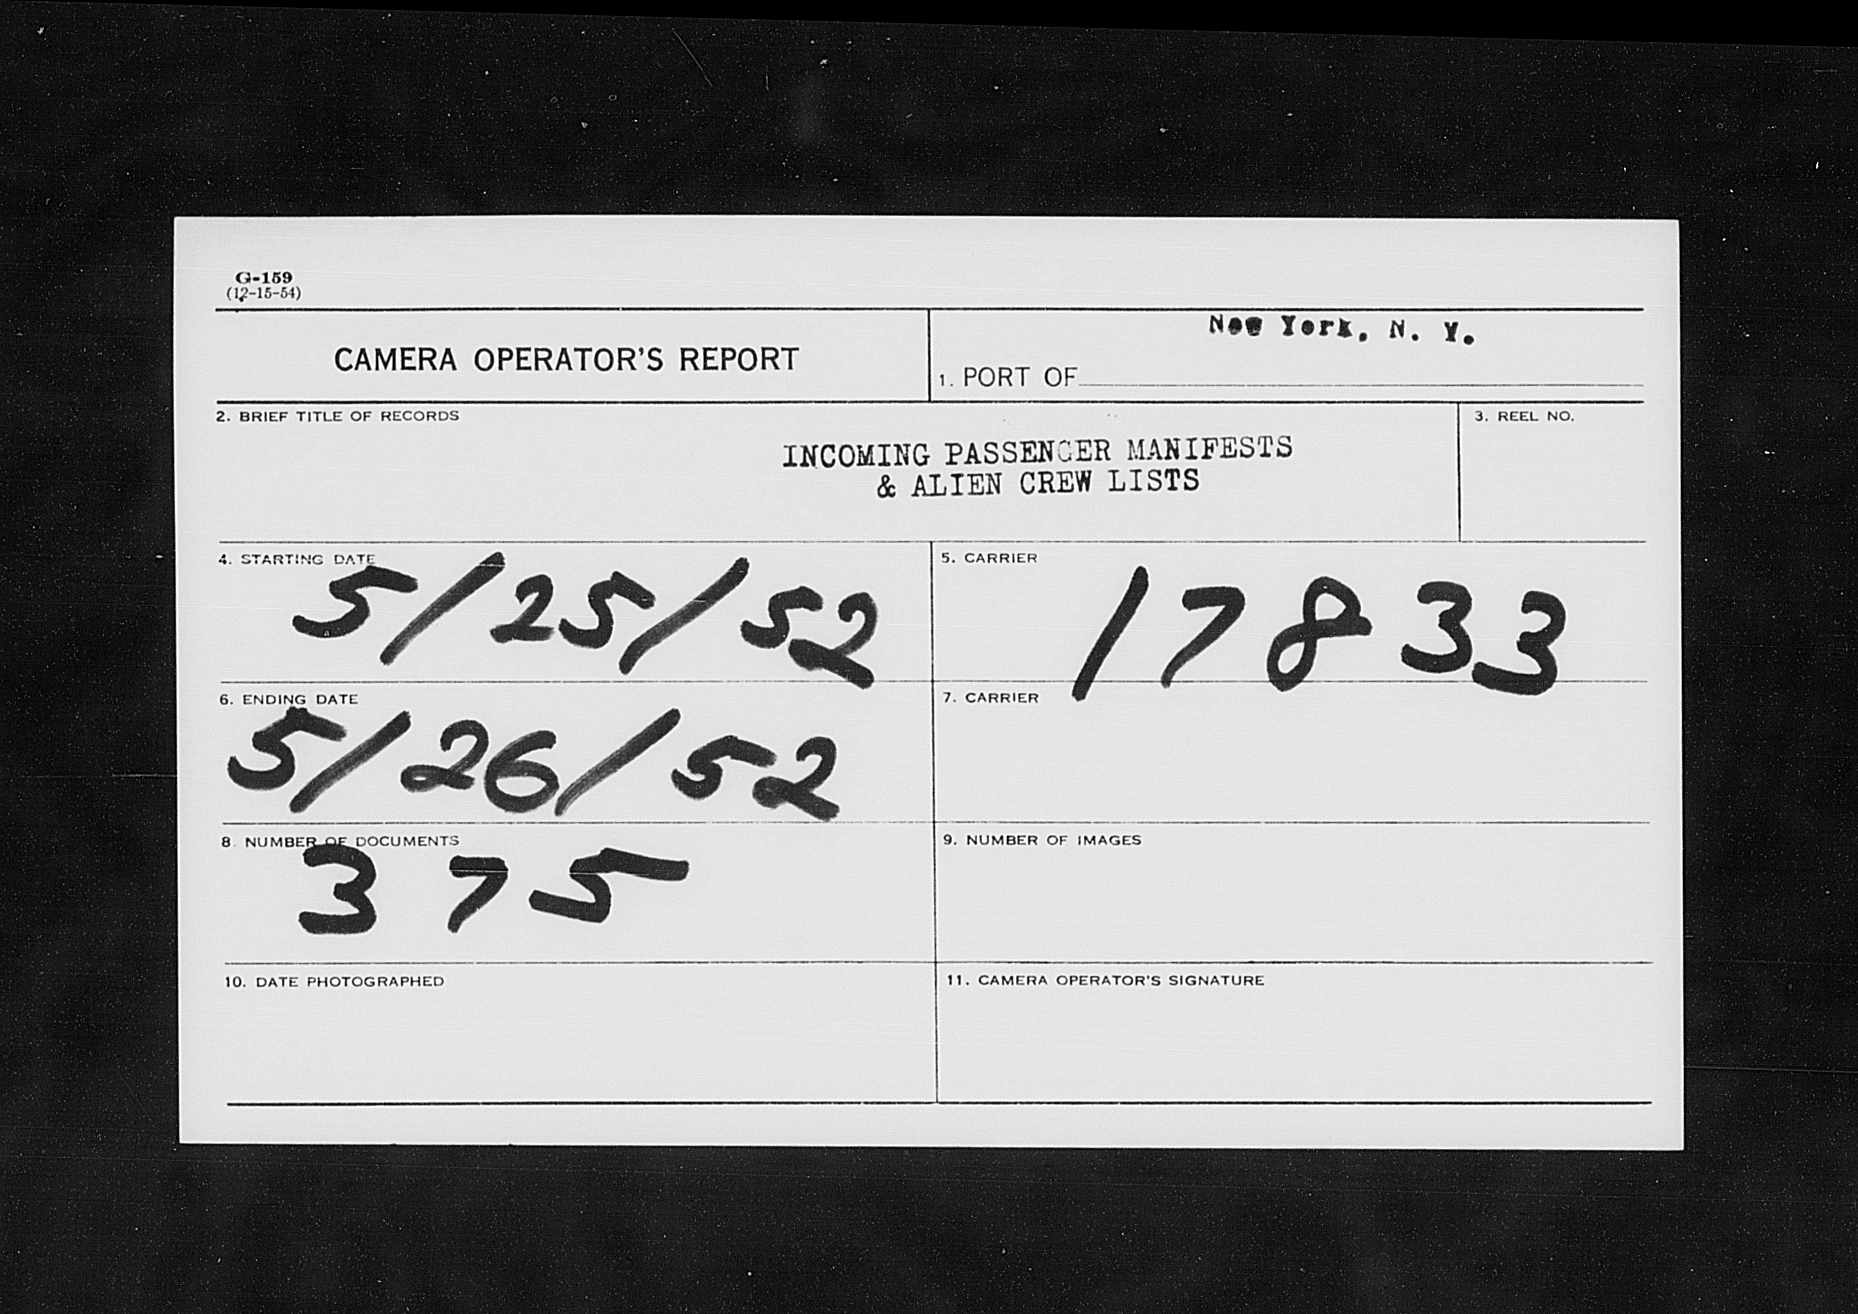 G-159
(12-15-54)
CAMERA OPERATOR'S REPORT
New York, N. Y.
1. PORT OF
2. BRIEF TITLE OF RECORDS
INCOMING PASSENGER MANIFESTS
& ALIEN CREW LISTS
3. REEL NO.
4. STARTING DATE
5/25/52
5. CARRIER
17833
6. ENDING DATE
5/26/52
7. CARRIER
8. NUMBER OF DOCUMENTS
375
9. NUMBER OF IMAGES
10. DATE PHOTOGRAPHED
11. CAMERA OPERATOR'S SIGNATURE